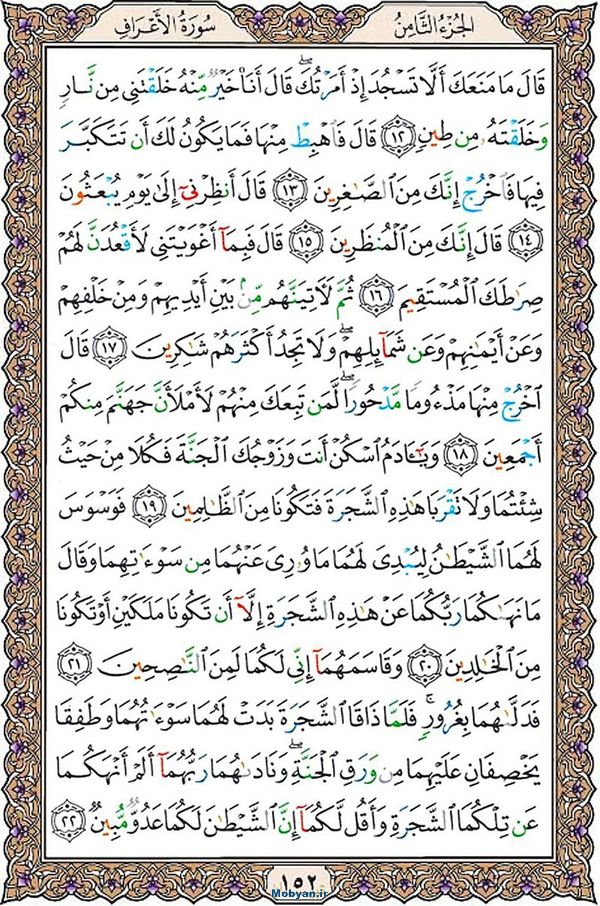 الجُزْءُ الثَّامِنُ
سُورَةُ الأَعْرَافِ
قَالَ مَا مَنَعَكَ أَلَّا تَسْجُدَ إِذْ أَمَرْتُكَ ۖ قَالَ أَنَا۠ خَيْرٌ مِّنْهُ خَلَقْتَنِى مِن نَّارٍ
وَخَلَقْتَهُۥ مِن طِينٍ ﴿١٢﴾ قَالَ فَٱهْبِطْ مِنْهَا فَمَا يَكُونُ لَكَ أَن تَتَكَبَّرَ
فِيهَا فَٱخْرُجْ إِنَّكَ مِنَ ٱلصَّٰغِرِينَ ﴿١٣﴾ قَالَ أَنظِرْنِىٓ إِلَىٰ يَوْمِ يُبْعَثُونَ
﴿١٤﴾ قَالَ إِنَّكَ مِنَ ٱلْمُنظَرِينَ ﴿١٥﴾ قَالَ فَبِمَآ أَغْوَيْتَنِى لَأَقْعُدَنَّ لَهُمْ
صِرَٰطَكَ ٱلْمُسْتَقِيمَ ﴿١٦﴾ ثُمَّ لَـَٔاتِيَنَّهُم مِّنۢ بَيْنِ أَيْدِيهِمْ وَمِنْ خَلْفِهِمْ
وَعَنْ أَيْمَٰنِهِمْ وَعَن شَمَآئِلِهِمْ ۖ وَلَا تَجِدُ أَكْثَرَهُمْ شَٰكِرِينَ ﴿١٧﴾ قَالَ
ٱخْرُجْ مِنْهَا مَذْءُومًا مَّدْحُورًا ۖ لَّمَن تَبِعَكَ مِنْهُمْ لَأَمْلَأَنَّ جَهَنَّمَ مِنكُمْ
أَجْمَعِينَ ﴿١٨﴾ وَيَٰٓـَٔادَمُ ٱسْكُنْ أَنتَ وَزَوْجُكَ ٱلْجَنَّةَ فَكُلَا مِنْ حَيْثُ
شِئْتُمَا وَلَا تَقْرَبَا هَٰذِهِ ٱلشَّجَرَةَ فَتَكُونَا مِنَ ٱلظَّٰلِمِينَ ﴿١٩﴾ فَوَسْوَسَ
لَهُمَا ٱلشَّيْطَٰنُ لِيُبْدِىَ لَهُمَا مَا وُۥرِىَ عَنْهُمَا مِن سَوْءَٰتِهِمَا وَقَالَ
مَا نَهَىٰكُمَا رَبُّكُمَا عَنْ هَٰذِهِ ٱلشَّجَرَةِ إِلَّآ أَن تَكُونَا مَلَكَيْنِ أَوْ تَكُونَا
مِنَ ٱلْخَٰلِدِينَ ﴿٢٠﴾ وَقَاسَمَهُمَآ إِنِّى لَكُمَا لَمِنَ ٱلنَّٰصِحِينَ ﴿٢١﴾
فَدَلَّىٰهُمَا بِغُرُورٍ ۚ فَلَمَّا ذَاقَا ٱلشَّجَرَةَ بَدَتْ لَهُمَا سَوْءَٰتُهُمَا وَطَفِقَا
يَخْصِفَانِ عَلَيْهِمَا مِن وَرَقِ ٱلْجَنَّةِ ۖ وَنَادَىٰهُمَا رَبُّهُمَآ أَلَمْ أَنْهَكُمَا
عَن تِلْكُمَا ٱلشَّجَرَةِ وَأَقُل لَّكُمَآ إِنَّ ٱلشَّيْطَٰنَ لَكُمَا عَدُوٌّ مُّبِينٌ ﴿٢٢﴾
١٥٢
Mobyan.ir